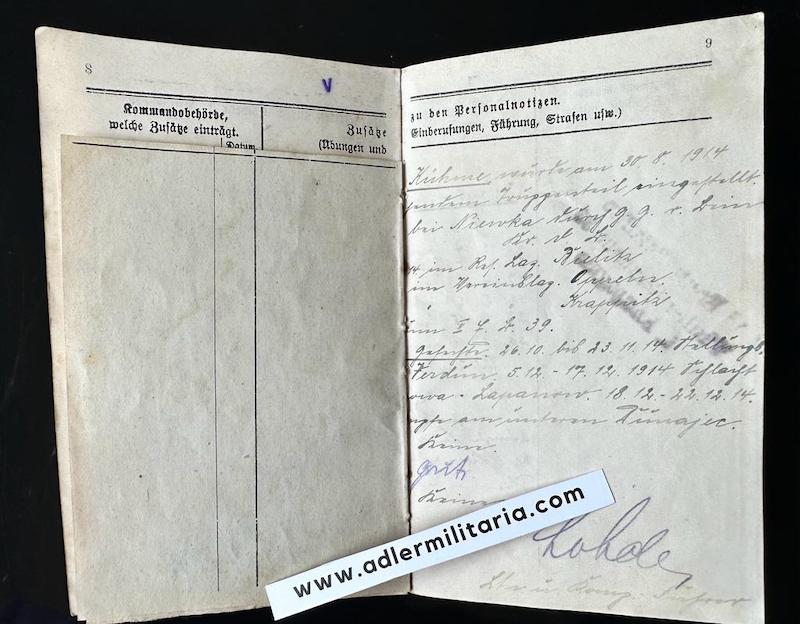 8
V
Kommandobehörde,
welche Zusätze einträgt.
Datum
Zusätze
(Übungen und
9
zu den Personalnotizen.
Einberufungen, Führung, Strafen usw.)
wurde am 30. 8. 1914
Truppenteil eingestellt.
bei Niewka durch G. G. r. Bein
im Res. Laz. Bielitz
im Vereinslaz. Oppeln.
Krappitz
39.
Gefechte. 26.10. bis 23.11.14. Stellungsk.
Verdun. 5.12. - 17.12.1914 Schlacht
Lapanow. 18.12. - 22.12.14.
am unteren Dunajec.
Keine.
gut
Keine
www.adlermilitaria.com
Lohde
Ltn u. Komp. Führer